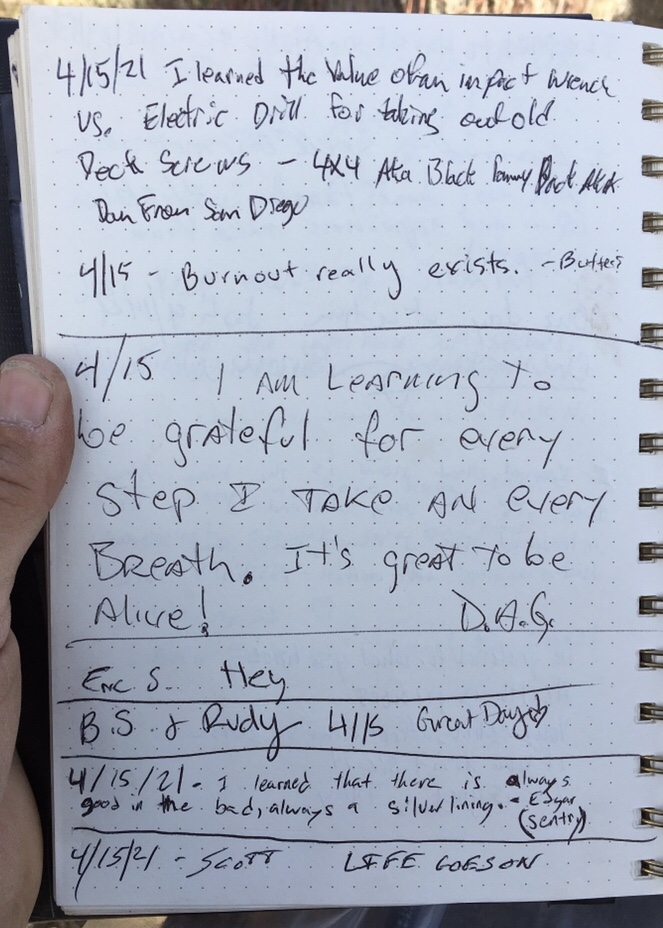 4/15/21 I learned the value of an impact wrench
vs. Electric Drill for taking out old
Deck Screws - 4x4 Aka Black Aka
Dan From San Diego
4/15 - Burnout really exists. - Butters
4/15 I AM LEARNING TO
be grateful for every
Step I TAKE AN every
BREATH. It's great to be
Alive! D.A.G.
Eric S. Hey
B.S. & Rudy 4/15 Great Day
4/15/21 - I learned that there is always
good in the bad, always a silver lining. - Edgar
(sentry)
4/15/21 - SCOTT LIFE GOES ON